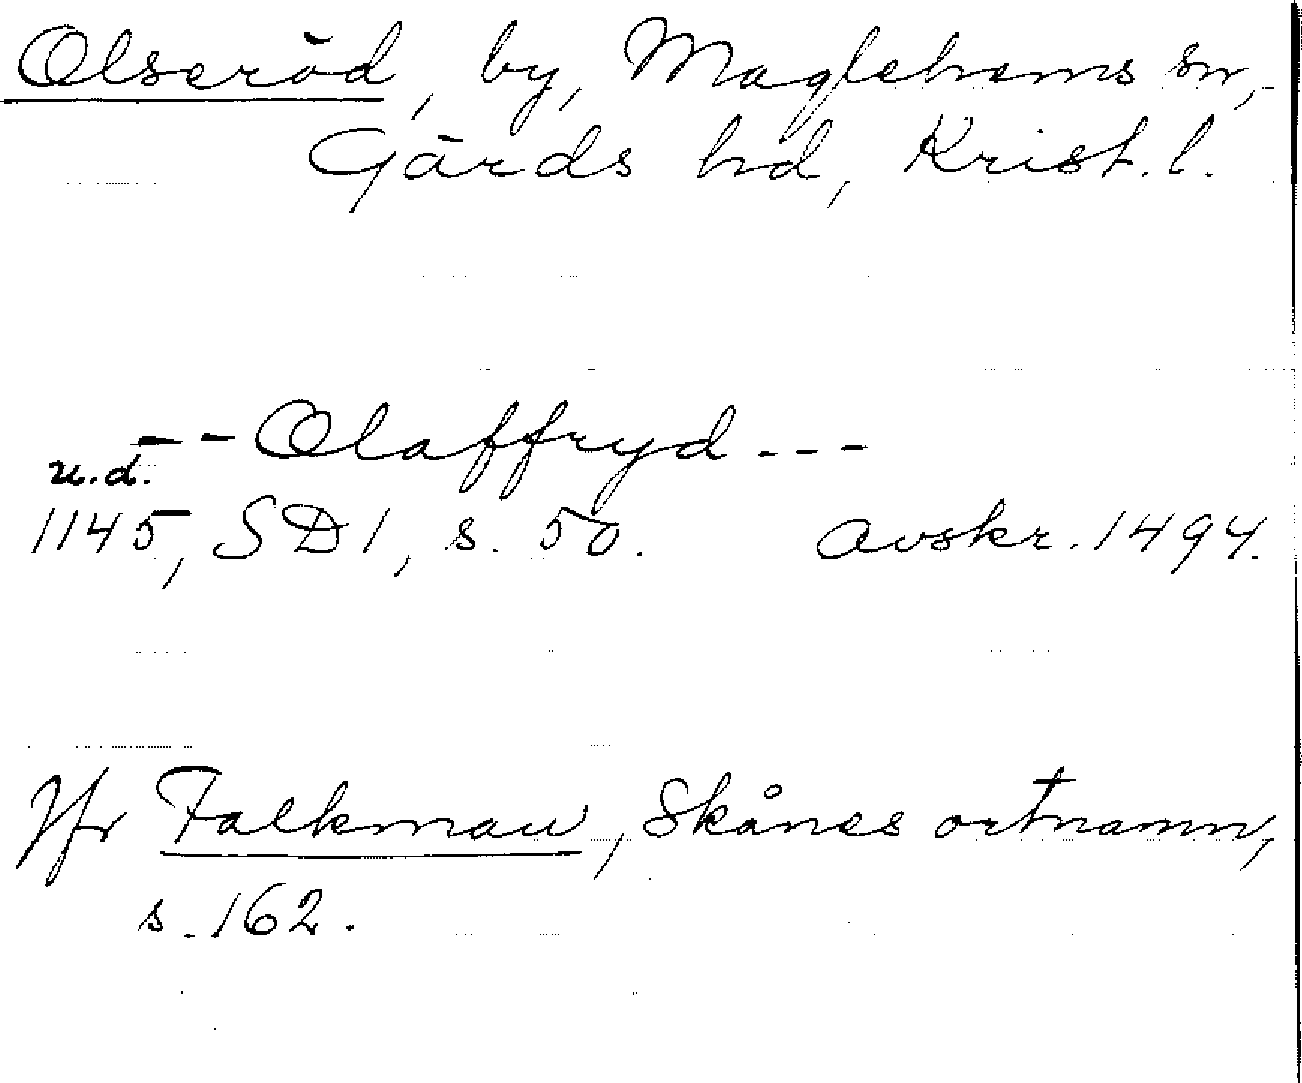 Olseröd, by, Maglehems sn,
Gärds hd, Krist. l.
-- Olaffryd ---
u.d.
1145, SD 1, s. 50. avskr. 1494.
Jfr Falkman, Skånes ortnamn,
s. 162.